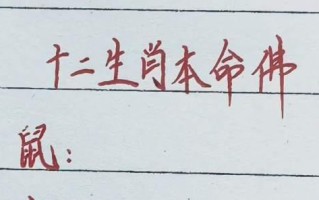 十二生肖本命佛
鼠：